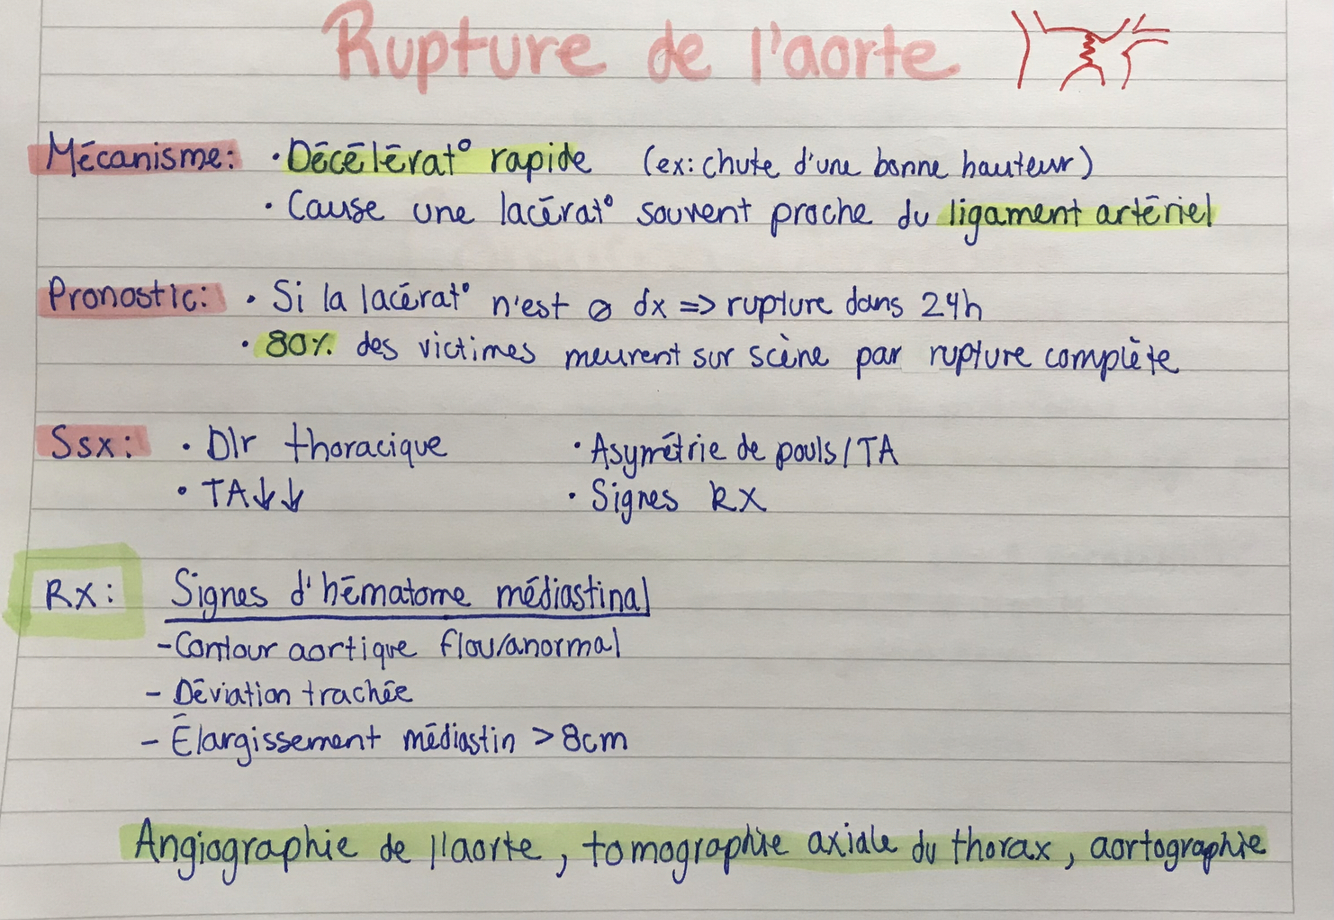 Rupture de l'aorte
Mécanisme: • Décélérat° rapide (ex: chute d'une bonne hauteur)
• Cause une lacérat° souvent proche du ligament artériel
Pronostic: • Si la lacérat° n'est ∅ dx => rupture dans 24h
• 80% des victimes meurent sur scène par rupture complète
Ssx: • Dlr thoracique • Asymétrie de pouls/TA
• TA↓↓ • Signes RX
Rx: Signes d'hématome médiastinal
- Contour aortique flou/anormal
- Déviation trachée
- Élargissement médiastin > 8cm
Angiographie de l'aorte, tomographie axiale du thorax, aortographie